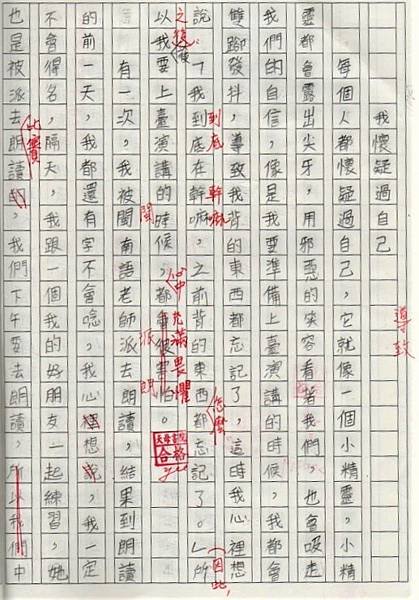 我懷疑過自己
每個人都懷疑過自己，它就像一個小精靈，小精
靈都會露出尖牙，用邪惡的笑容看著我們，也會吸走
我們的自信，像是我要準備上臺演講的時候，我都會
雙腳發抖，導致我背的東西都忘記了，這時我心裡想
說「我到底在幹嘛，之前背的東西都忘記了。」所
以我要上臺演講的時候，都會很害怕。
有一次，我被閩南語老師派去朗讀，結果到朗讀
的前一天，我都還有字不會唸，我心想說，我一定
不會得名，隔天，我跟一個我的好朋友一起練習，她
也是被派去朗讀的，我們下午要去朗讀，所以我們中
導致
到底
幹嘛
怎麼
（因此，
之後
心中充滿畏懼
閩
派
朗
比賽
合格